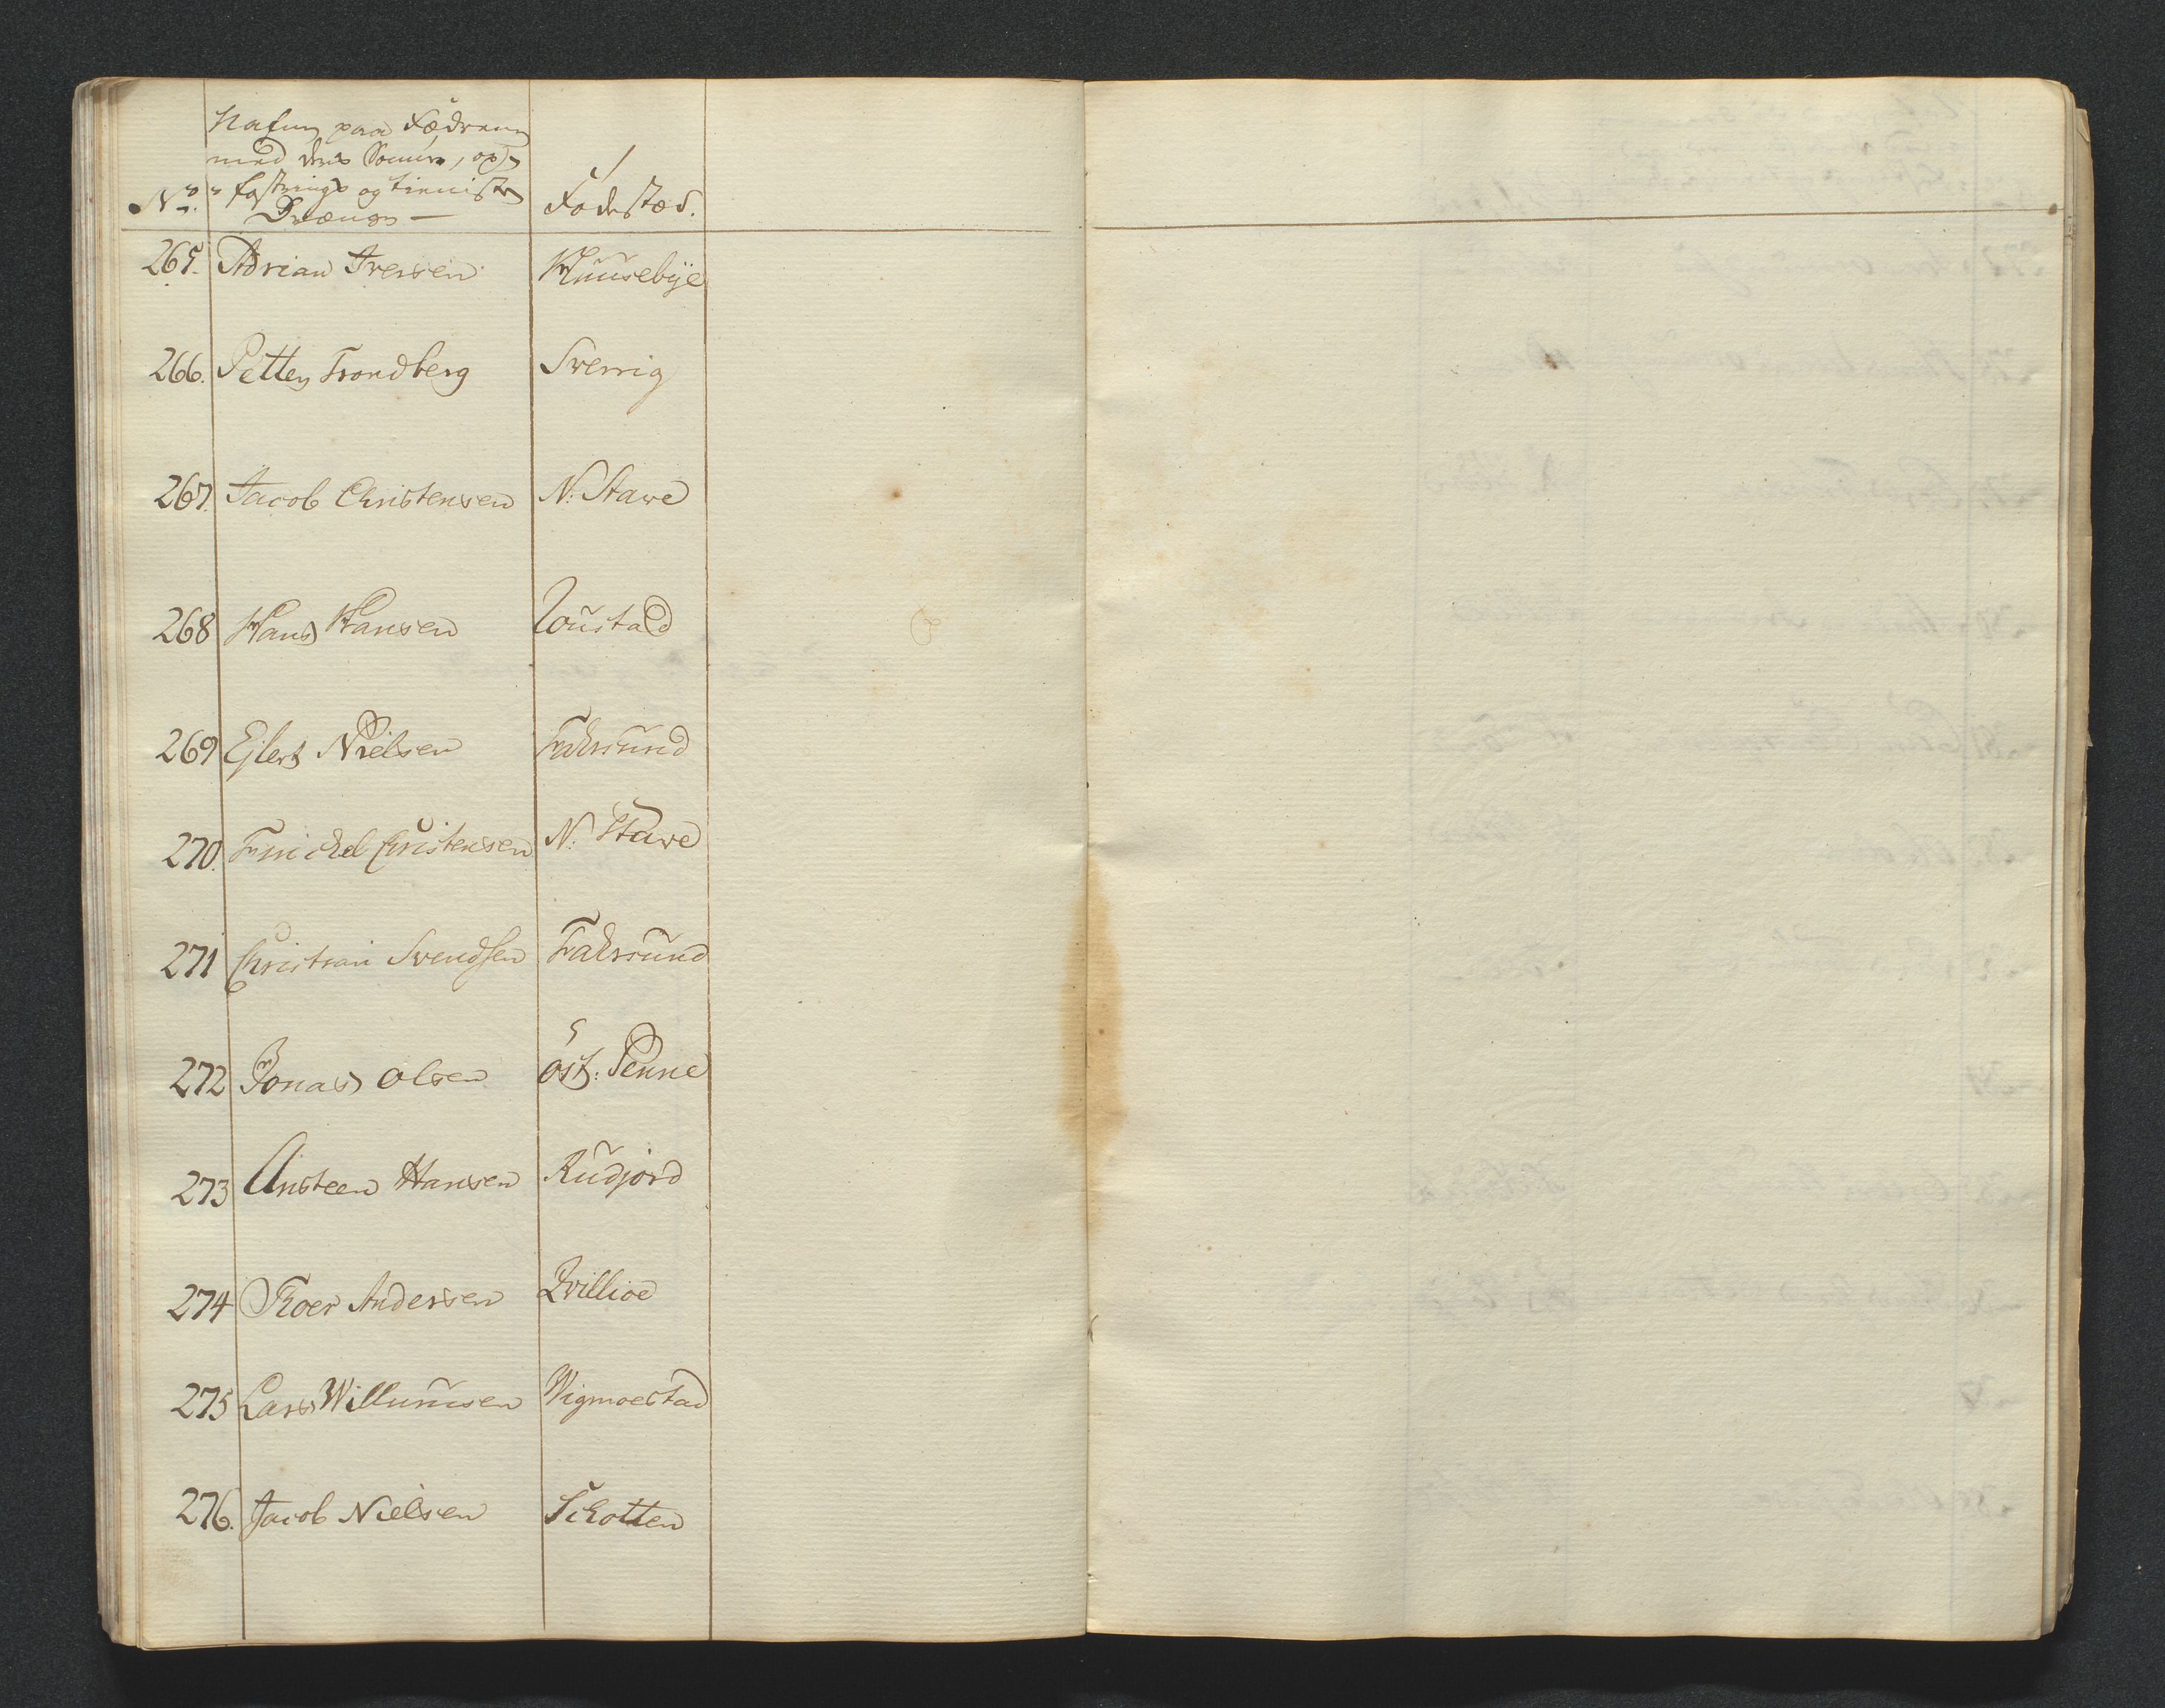 Nafn paa Fædrene
med deres Sønner, op-
No. fostrings og tienniste
Drænge — Fødestæd.
265. Adrian Iversen Huusebÿe
266. Petter Trondberg Sverrig
267. Jacob Christensen N: Stave
268 Hans Hansen Loustad
269 Ejlert Nielsen Fahrsund
270. Christensen N: Stave
271 Christian Svendsen Fahrsund
272 Jonas Olsen öst: Penne
273 Ansteen Hansen Rudjord
274 Roer Andersen
275 Lars Willumsen Wigmoestad
276. Jacob Nielsen Schotten